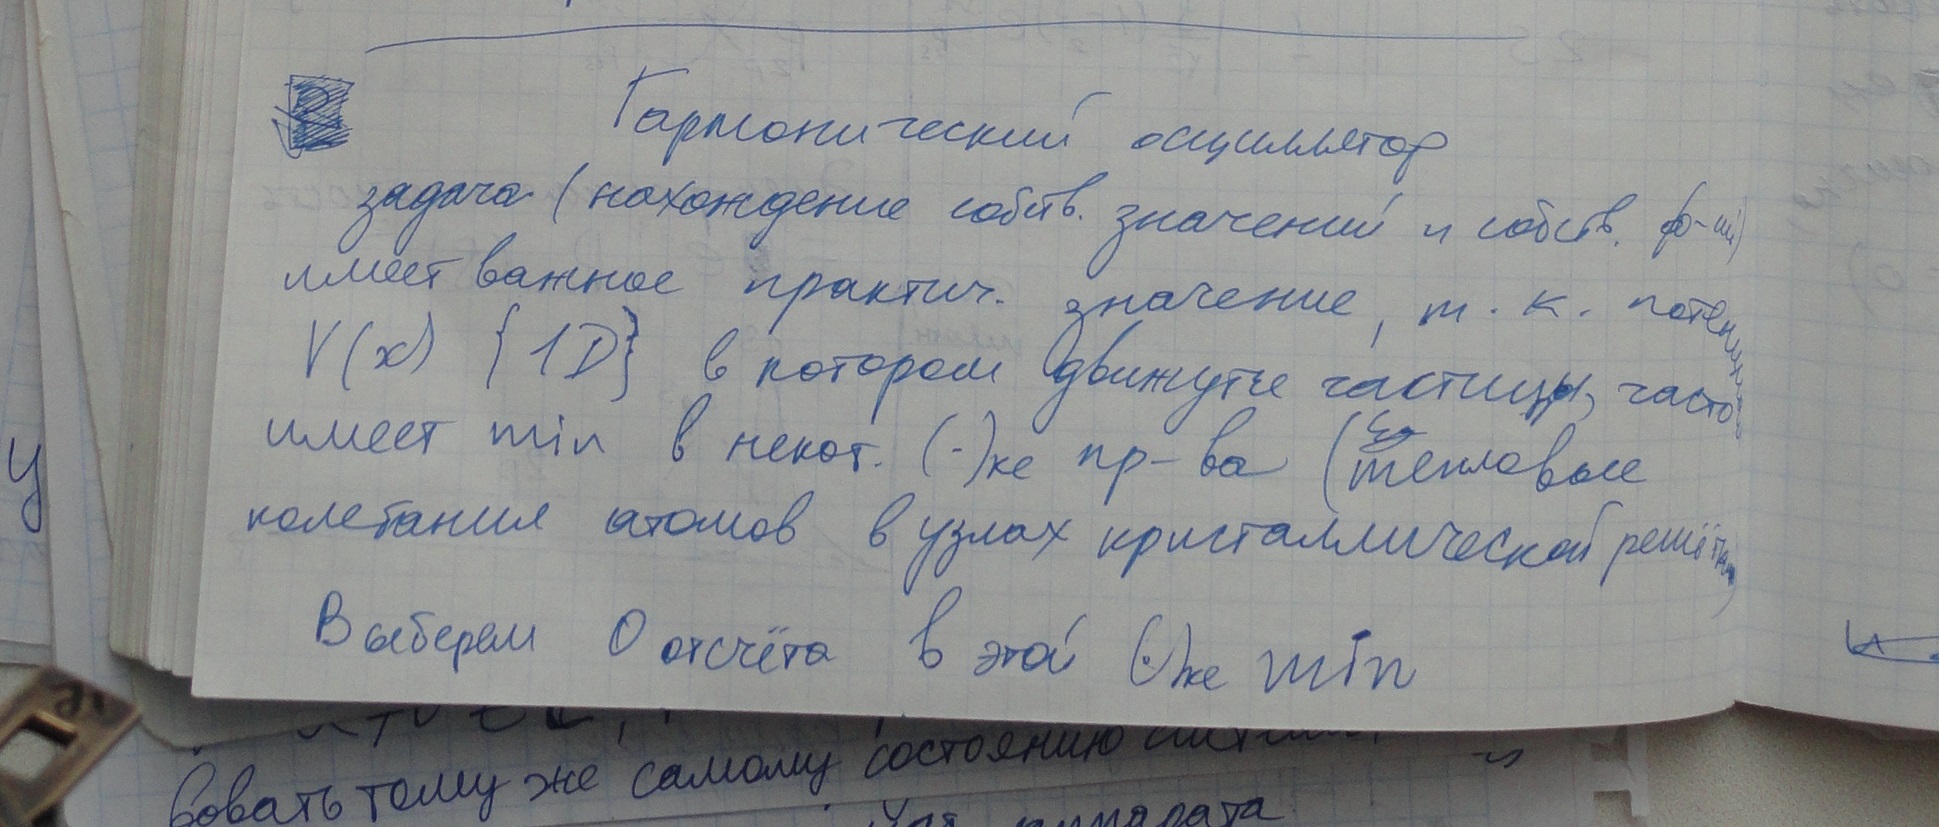 Гармонический осциллятор
задача (нахождение собств. значений и собств. ф-ий)
имеет важное практич. значение, т. к. потенциал
V(x) {1D} в котором движутся частицы, часто
имеет min в некот. (·)ке пр-ва (тепловые
колебания атомов в узлах кристаллической решётки)
Выберем 0 отсчёта в этой (·)ке min
у
вовать тому же самому состоянию
аппарата